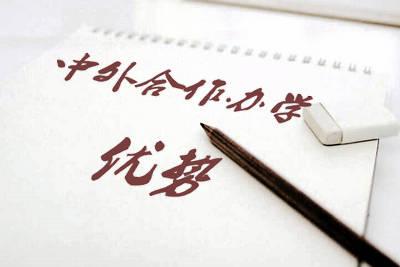 中外合作办学
优势